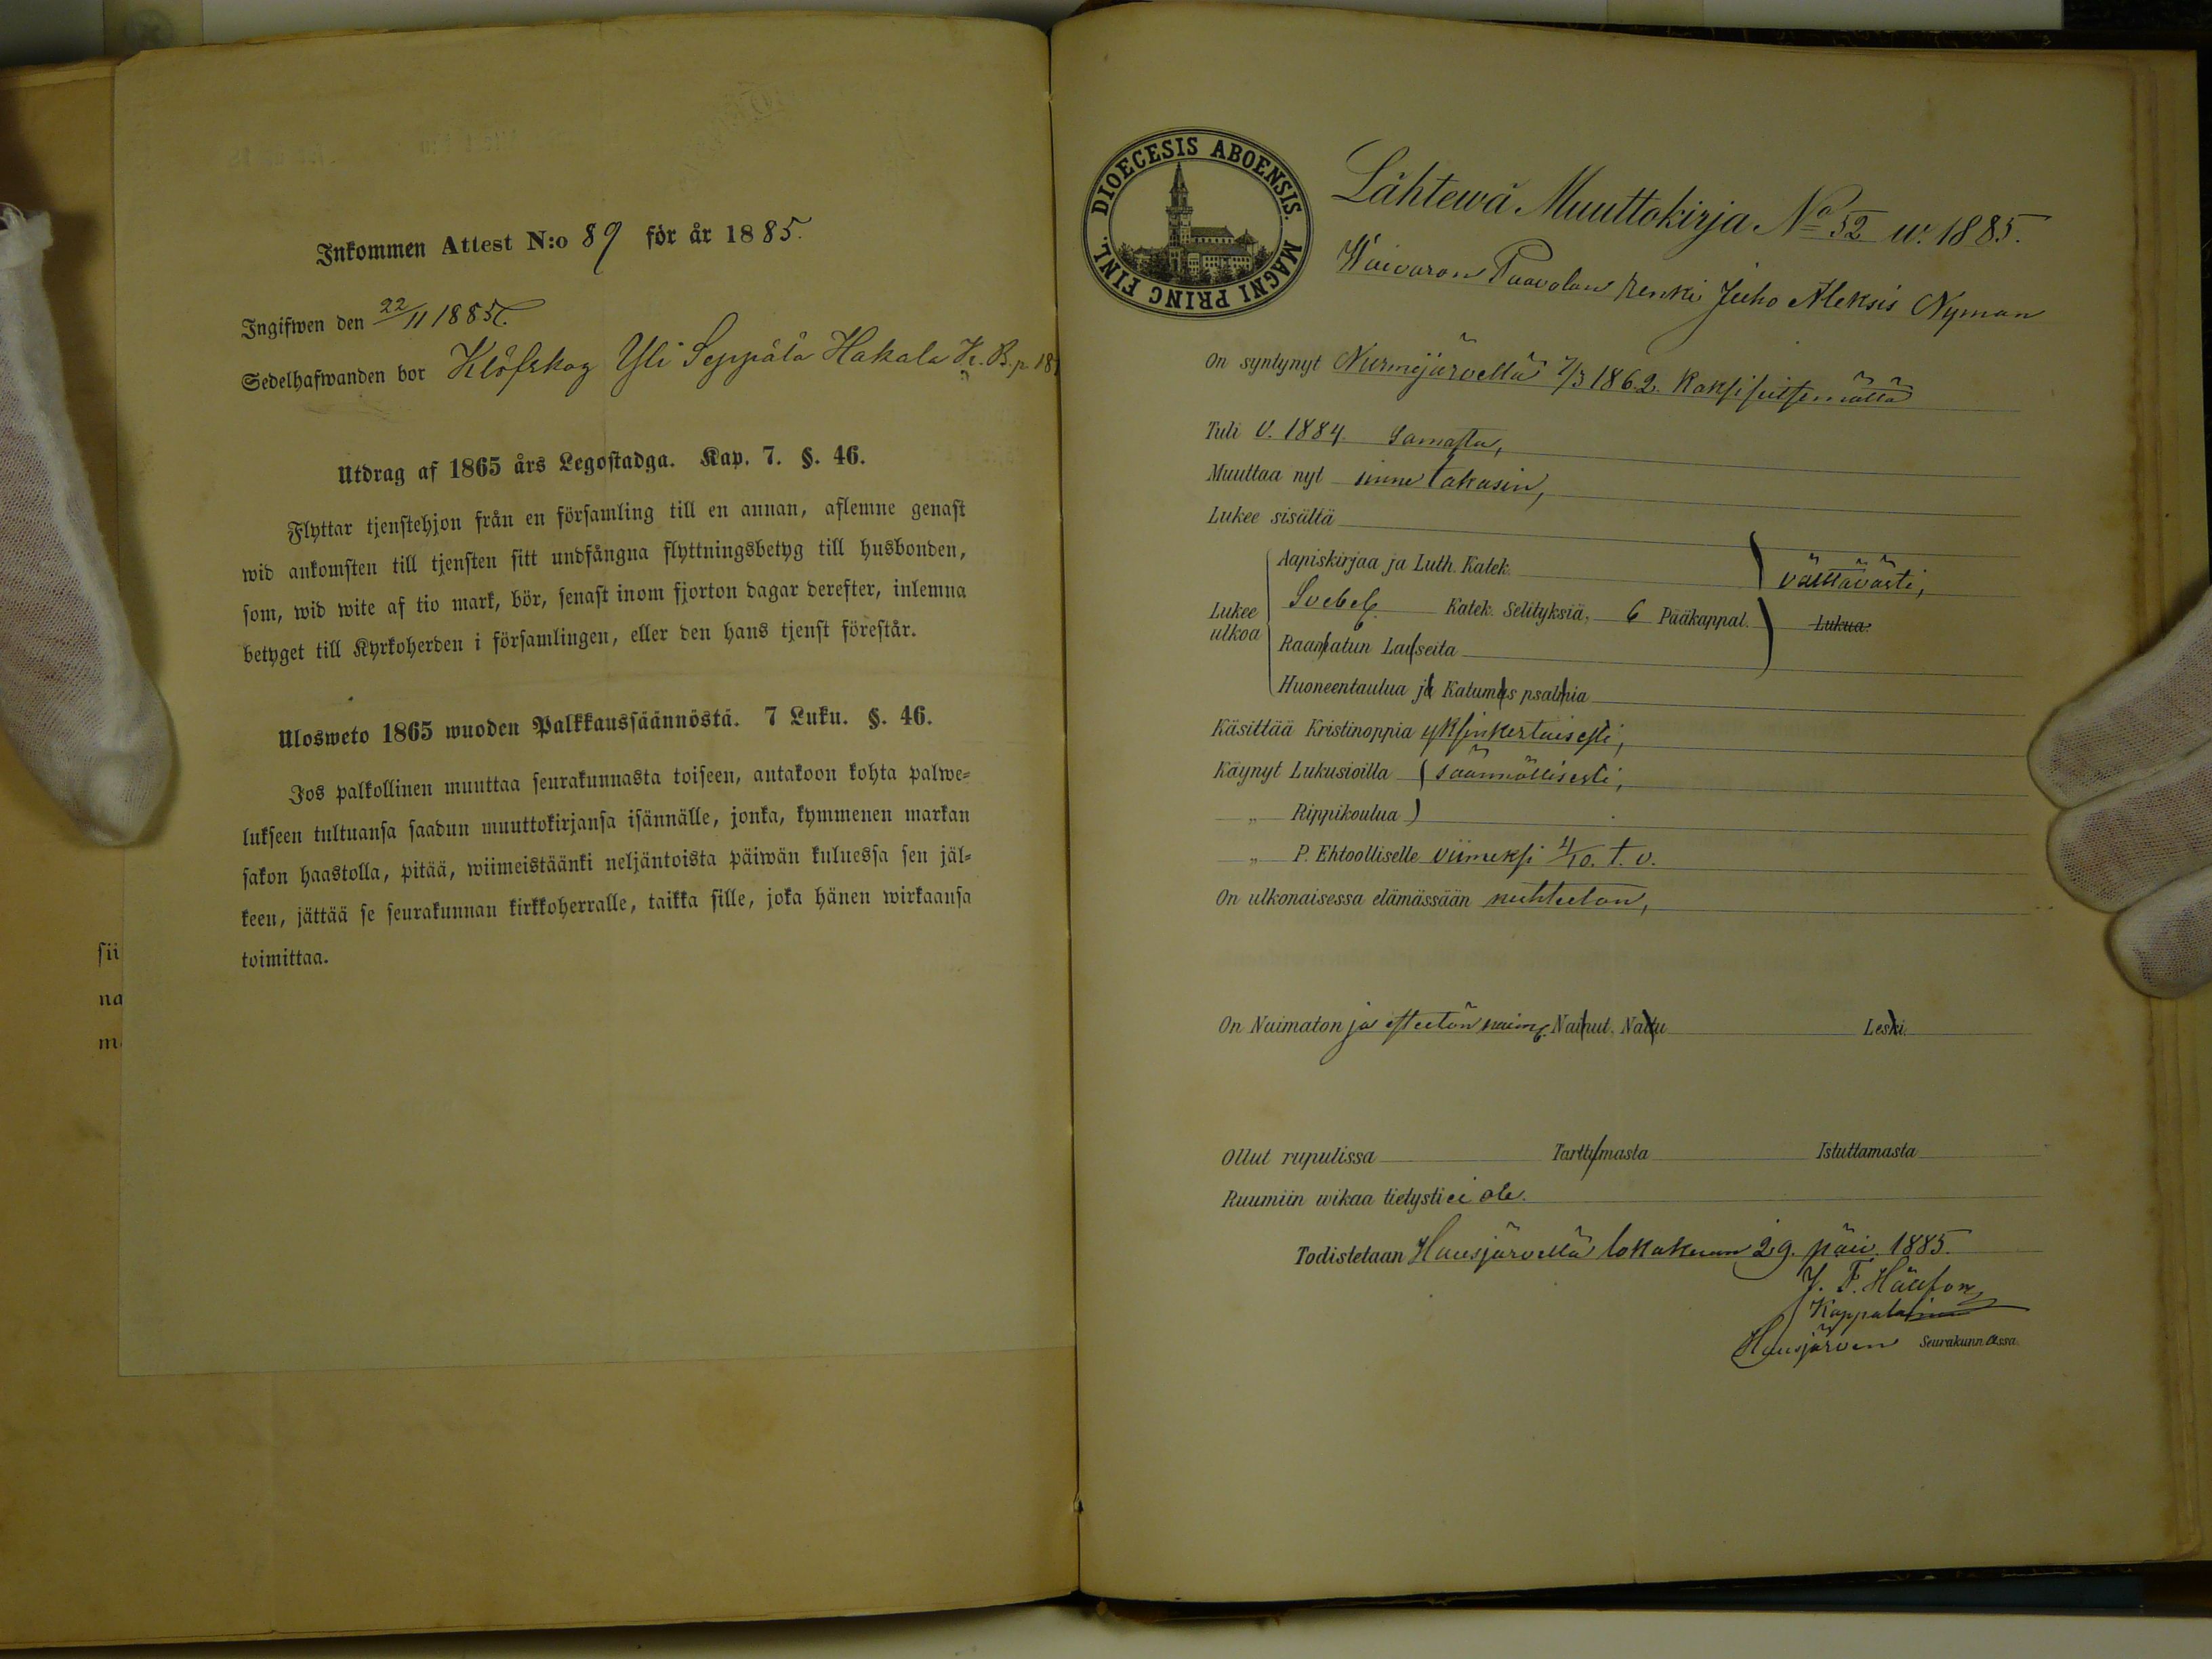 Inkommen Attest N:o 89 för år 1885.
Ingifwen den 22/11 1885.
Sedelhafwanden bor Klöfskog Yli Seppälä Hakala K. B. p. 18
Utdrag af 1865 års Legostadga. Kap. 7. §. 46.
Flyttar tjenstehjon från en församling till en annan, aflemne genast
wid ankomsten till tjensten sitt undfångna flyttningsbetyg till husbonden,
som, wid wite af tio mark, bör, senast inom fjorton dagar derefter, inlemna
betyget till Kyrkoherden i församlingen, eller den hans tjenst förestår.
Ulosweto 1865 wuoden Palkkaussäännöstä. 7 Luku. §. 46.
Jos palkollinen muuttaa seurakunnasta toiseen, antakoon kohta palwe-
lukseen tultuansa saadun muuttokirjansa isännälle, jonka, kymmenen markan
sakon haastolla, pitää, wiimeistäänki neljäntoista päiwän kuluessa sen jäl-
keen, jättää se seurakunnan kirkkoherralle, taikka sille, joka hänen wirkaansa
toimittaa.
sii
na
m
DIOECESIS ABOENSIS. MAGNI PRINC FINL.
Lähtewä Muuttokirja No 52 w. 1885.
Paavolan renki Juho Aleksis Nyman
On syntynyt Nurmijärvellä 7/3 1862. Kaksi seitsemättä
Tuli v. 1884 samasta,
Muuttaa nyt sinne takasin,
Lukee sisältä
Aapiskirjaa ja Luth. Katek. välttävästi,
Lukee ulkoa Svebel. Katek. Selityksiä, 6 Pääkappal. Lukua.
Raamatun Lauseita
Huoneentaulua ja Katumus psalmia
Käsittää Kristinoppia yksinkertaisesti,
Käynyt Lukusioilla säännöllisesti,
„ Rippikoulua
„ P. Ehtoolliselle viimeksi 4/10. t. v.
On ulkonaisessa elämässään nuhteeton,
On Naimaton ja esteetön naim. Nainut. Naitu Leski.
Ollut rupulissa Tarttymasta Istuttamasta
Ruumiin wikaa tietysti ei ole.
Todistetaan Hausjärvellä lokakuun 29. päiv. 1885.
Kappalainen
Hausjärven Seurakunnassa.